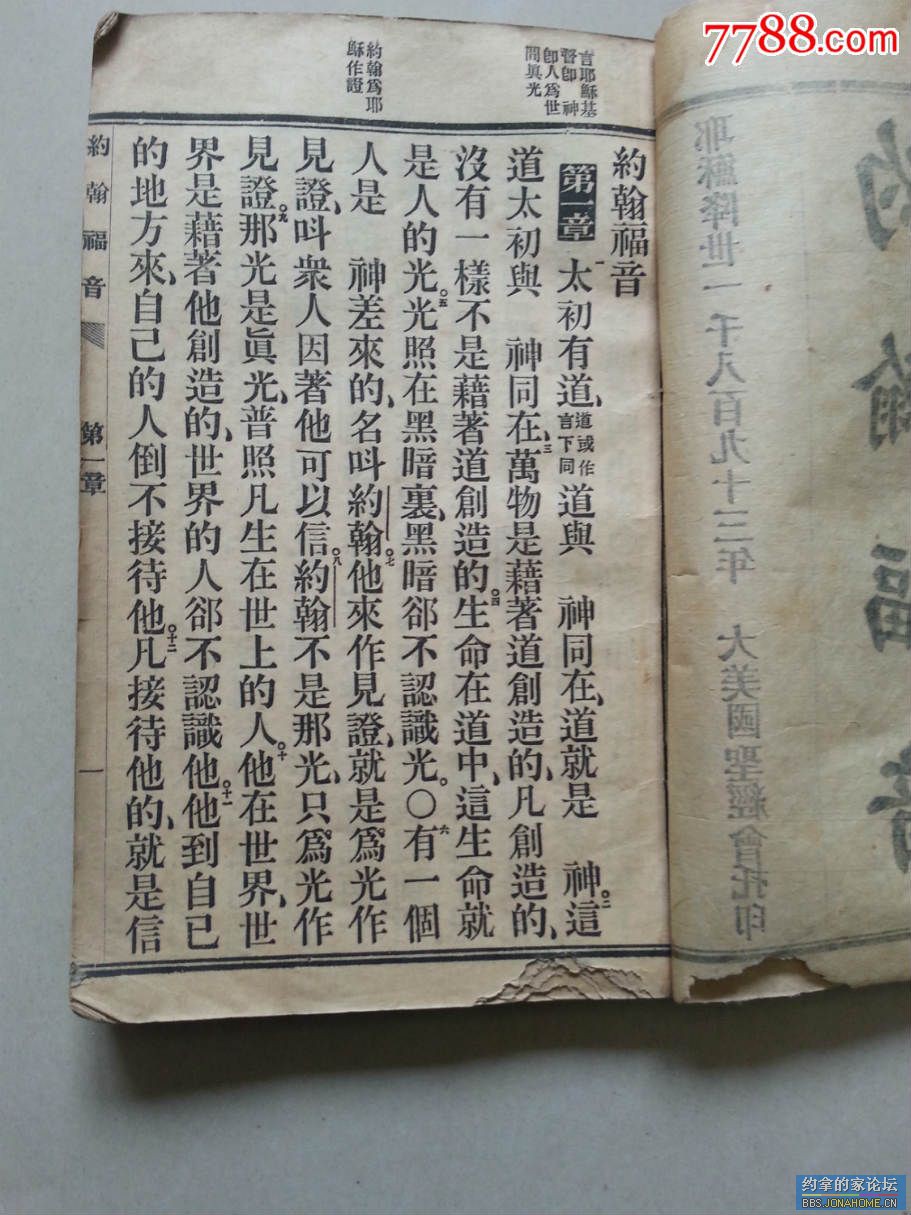 7788.com
言耶穌基
督卽 神
卽人爲世
間眞光
約翰爲耶
穌作證
約翰福音
第一章 一太初有道、道或作言下同道與 神同在、道就是 神。二這
道太初與 神同在、三萬物是藉著道創造的、凡創造的、
沒有一樣不是藉著道創造的。四生命在道中、這生命就
是人的光。五光照在黑暗裏、黑暗郤不認識光。○六有一個
人是 神差來的、名呌約翰。七他來作見證、就是爲光作
見證、呌衆人因著他可以信。八約翰不是那光、只爲光作
見證。九那光是眞光、普照凡生在世上的人。十他在世界、世
界是藉著他創造的、世界的人郤不認識他。十一他到自己
的地方來、自己的人倒不接待他。十二凡接待他的、就是信
約翰福音 第一章 一
耶穌降世一千八百九十三年 大美國聖經會托印
約翰福音
约拿的家论坛
BBS.JONAHOME.CN